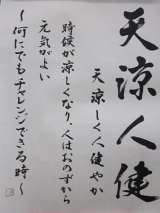 天涼人健
天涼しく人健やか
時候が涼しくなり、人はおのずから
元気がよい
〜何にでもチャレンジできる時〜